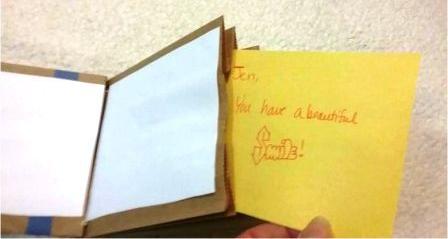 Jen,
You have a beautiful
Smile!